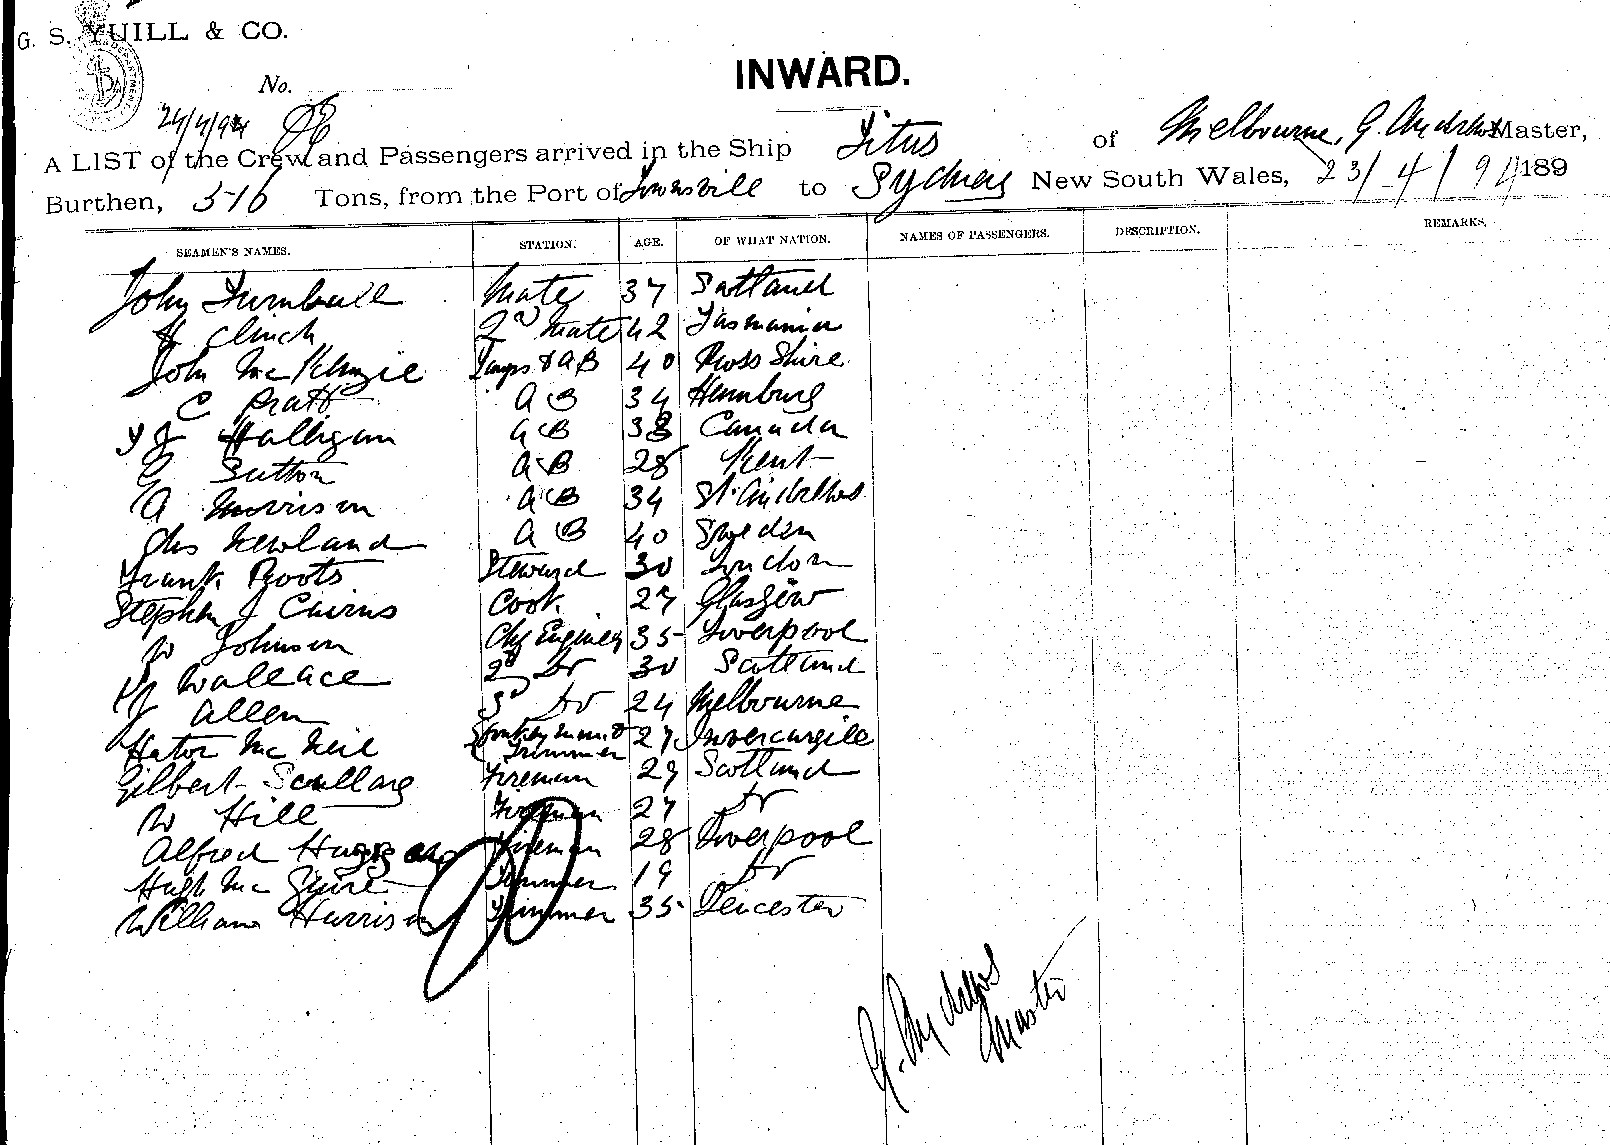 G. S. YUILL & CO.
INWARD.
No.
24/4/94
A LIST of the Crew and Passengers arrived in the Ship Titus of Melbourne, G. Andrews Master,
Burthen, 516 Tons, from the Port of Townsvill to Sydney New South Wales, 23/4/94 189
SEAMEN'S NAMES. STATION. AGE. OF WHAT NATION. NAMES OF PASSENGERS. DESCRIPTION. REMARKS.
John Turnbull Mate 37 Scotland
H Clinch 2nd Mate 42 Tasmania
John McKenzie Lamps & AB 40 Ross Shire
C Pratt AB 34 Hamburg
Halligan AB 38 Canada
Sutton AB 28 Kent
A Morrison AB 34 St. Andrews
Chs Newland AB 40 Sweden
Frank Roots Steward 30 London
Stephen J Cairns Cook 27 Glasgow
W Johnson Chf Engineer 35 Liverpool
Wallace 2d do 30 Scotland
J Allen 3d do 24 Melbourne
Hator McNeil 27 Invercargill
Trimmer
Gilbert Scullary Fireman 29 Scotland
W Hill Fireman 27 do
Alfred Fireman 28 Liverpool
Hugh McGuire Trimmer 19 do
William Harrison Trimmer 35 Leicester
G. Andrews
Master